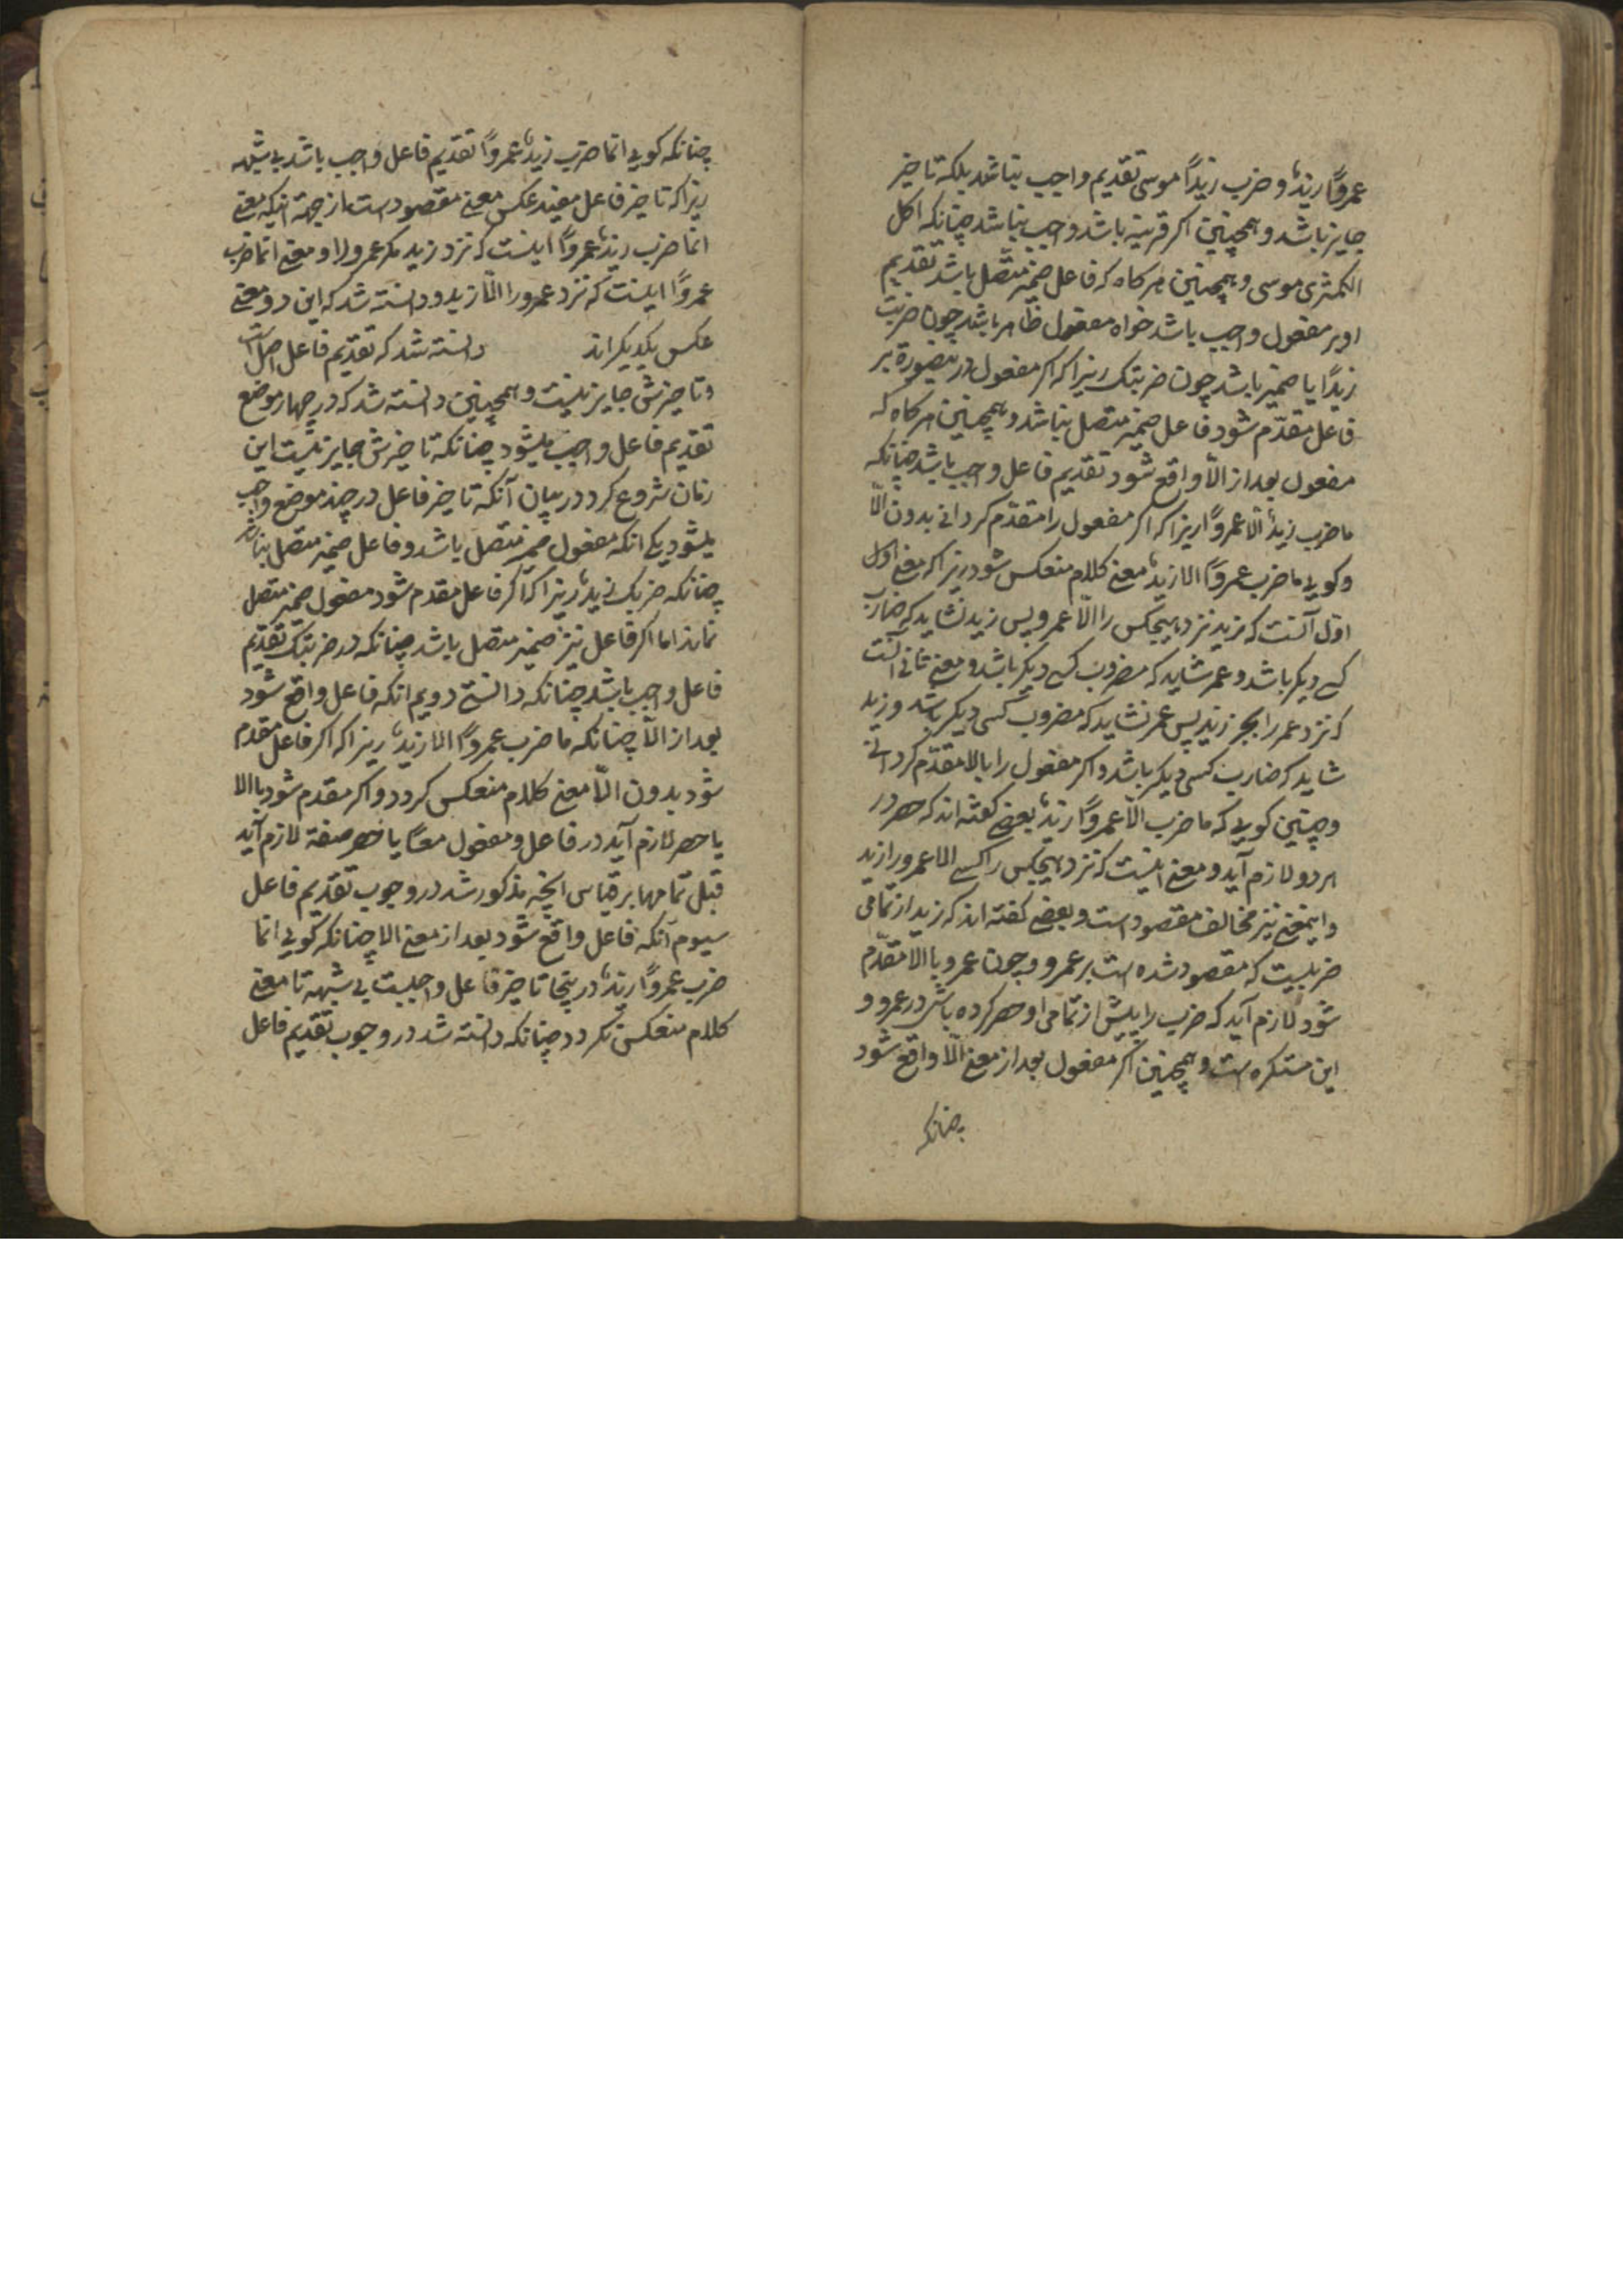 عمروًا زیدٌ و ضرب زیدًا موسی تقدیم واجب نباشد بلکه تاخیر
جایز باشد و همچنین اکر قرینه باشد واجب نباشد چنانکه اکل
الکمثری موسی و همچنین هرکاه که فاعل ضمیر متّصل باشد تقدیم
او بر مفعول واجب باشد خواه مفعول ظاهر باشد چون ضربت
زیدًا یا ضمیر باشد چون ضربتک زیرا که اکر مفعول درینصورة بر
فاعل مقدّم شود فاعل ضمیر متصل نباشد و همچنین هرکاه که
مفعول بعد از الّا واقع شود تقدیم فاعل واجب باشد چنانکه
ما ضرب زیدٌ الّا عمروًا زیرا که اکر مفعول را مقدّم کردانی بدون الّا
و کویی ما ضرب عمروًا الا زیدٌ معنی کلام منعکس شود زیرا که معنی اول
اوّل آنست که زید نزد هیچکس را الّا عمرو پس زید نشاید که ضارب
کسی دیکر باشد و عمر شاید که مضروب کسی دیکر باشد و معنی ثانی انست
که نزد عمر را بجز زید پس عمر نشاید که مضروب کسی دیکر باشد و زید
شاید که ضارب کسی دیکر باشد و اکر مفعول را بالا مقدّم کردانی
و چنین کویی که ما ضرب الّا عمروًا زیدٌ بعضی کفته اند که حصر در
هر دو لازم آید و معنی اینست که نزد هیچکس را کسی الا عمرو را زید
و اینمعنی نیز مخالف مقصود است و بعضی کفته اند که زید از تمامی
ضربیست که مقصود شده است بر عمرو و چون عمرو با الا مقدّم
شود لازم آید که ضرب را پیش از تمامی او حصر کرده باشی در عمرو و
این مستکره است و همچنین اکر مفعول بعد از معنی الّا واقع شود
چنانکه
چنانکه کویی انما ضرب زیدٌ عمروًا تقدیم فاعل واجب باشد بی شبهه
زیرا که تاخیر فاعل مفید عکس معنی مقصود است از جهة اینکه معنی
انما ضرب زیدٌ عمروًا اینست که نزد زید مکر عمرو را و معنی انما ضرب
عمروًا اینست که نزد عمرو را الّا زید و دانسته شد که این دو معنی
عکس یکدیکراند دانسته شد که تقدیم فاعل اصل است
و تاخیرش جایز نیست و همچنین دانسته شد که در چهار موضع
تقدیم فاعل واجب میشود چنانکه تاخیرش جایز نیست این
زمان شروع کرد در بیان آنکه تاخیر فاعل در چند موضع واجب
میشود یکی انکه مفعول ضمیر متصل باشد و فاعل ضمیر متصل نباشد
چنانکه ضربک زیدٌ زیرا که اکر فاعل مقدم شود مفعول ضمیر متصل
نماند اما اکر فاعل نیز ضمیر متصل باشد چنانکه در ضربتک تقدیم
فاعل واجب باشد چنانکه دانستی دویم انکه فاعل واقع شود
بعد از الّا چنانکه ما ضرب عمروًا الا زیدٌ زیرا که اکر فاعل مقدم
شود بدون الّا معنی کلام منعکس کردد و اکر مقدم شود با الا
یا حصر لازم آید در فاعل و مفعول معًا یا حصر صفة لازم آید
قبل تمامها بر قیاس آنچه مذکور شد در وجوب تقدیم فاعل
سیوم آنکه فاعل واقع شود بعد از معنی الا چنانکه کویی انما
ضرب عمروًا زیدٌ درینجا تاخیر فاعل واجبست بی شبهه تا معنی
کلام منعکس نکردد چنانکه دانسته شد در وجوب تقدیم فاعل